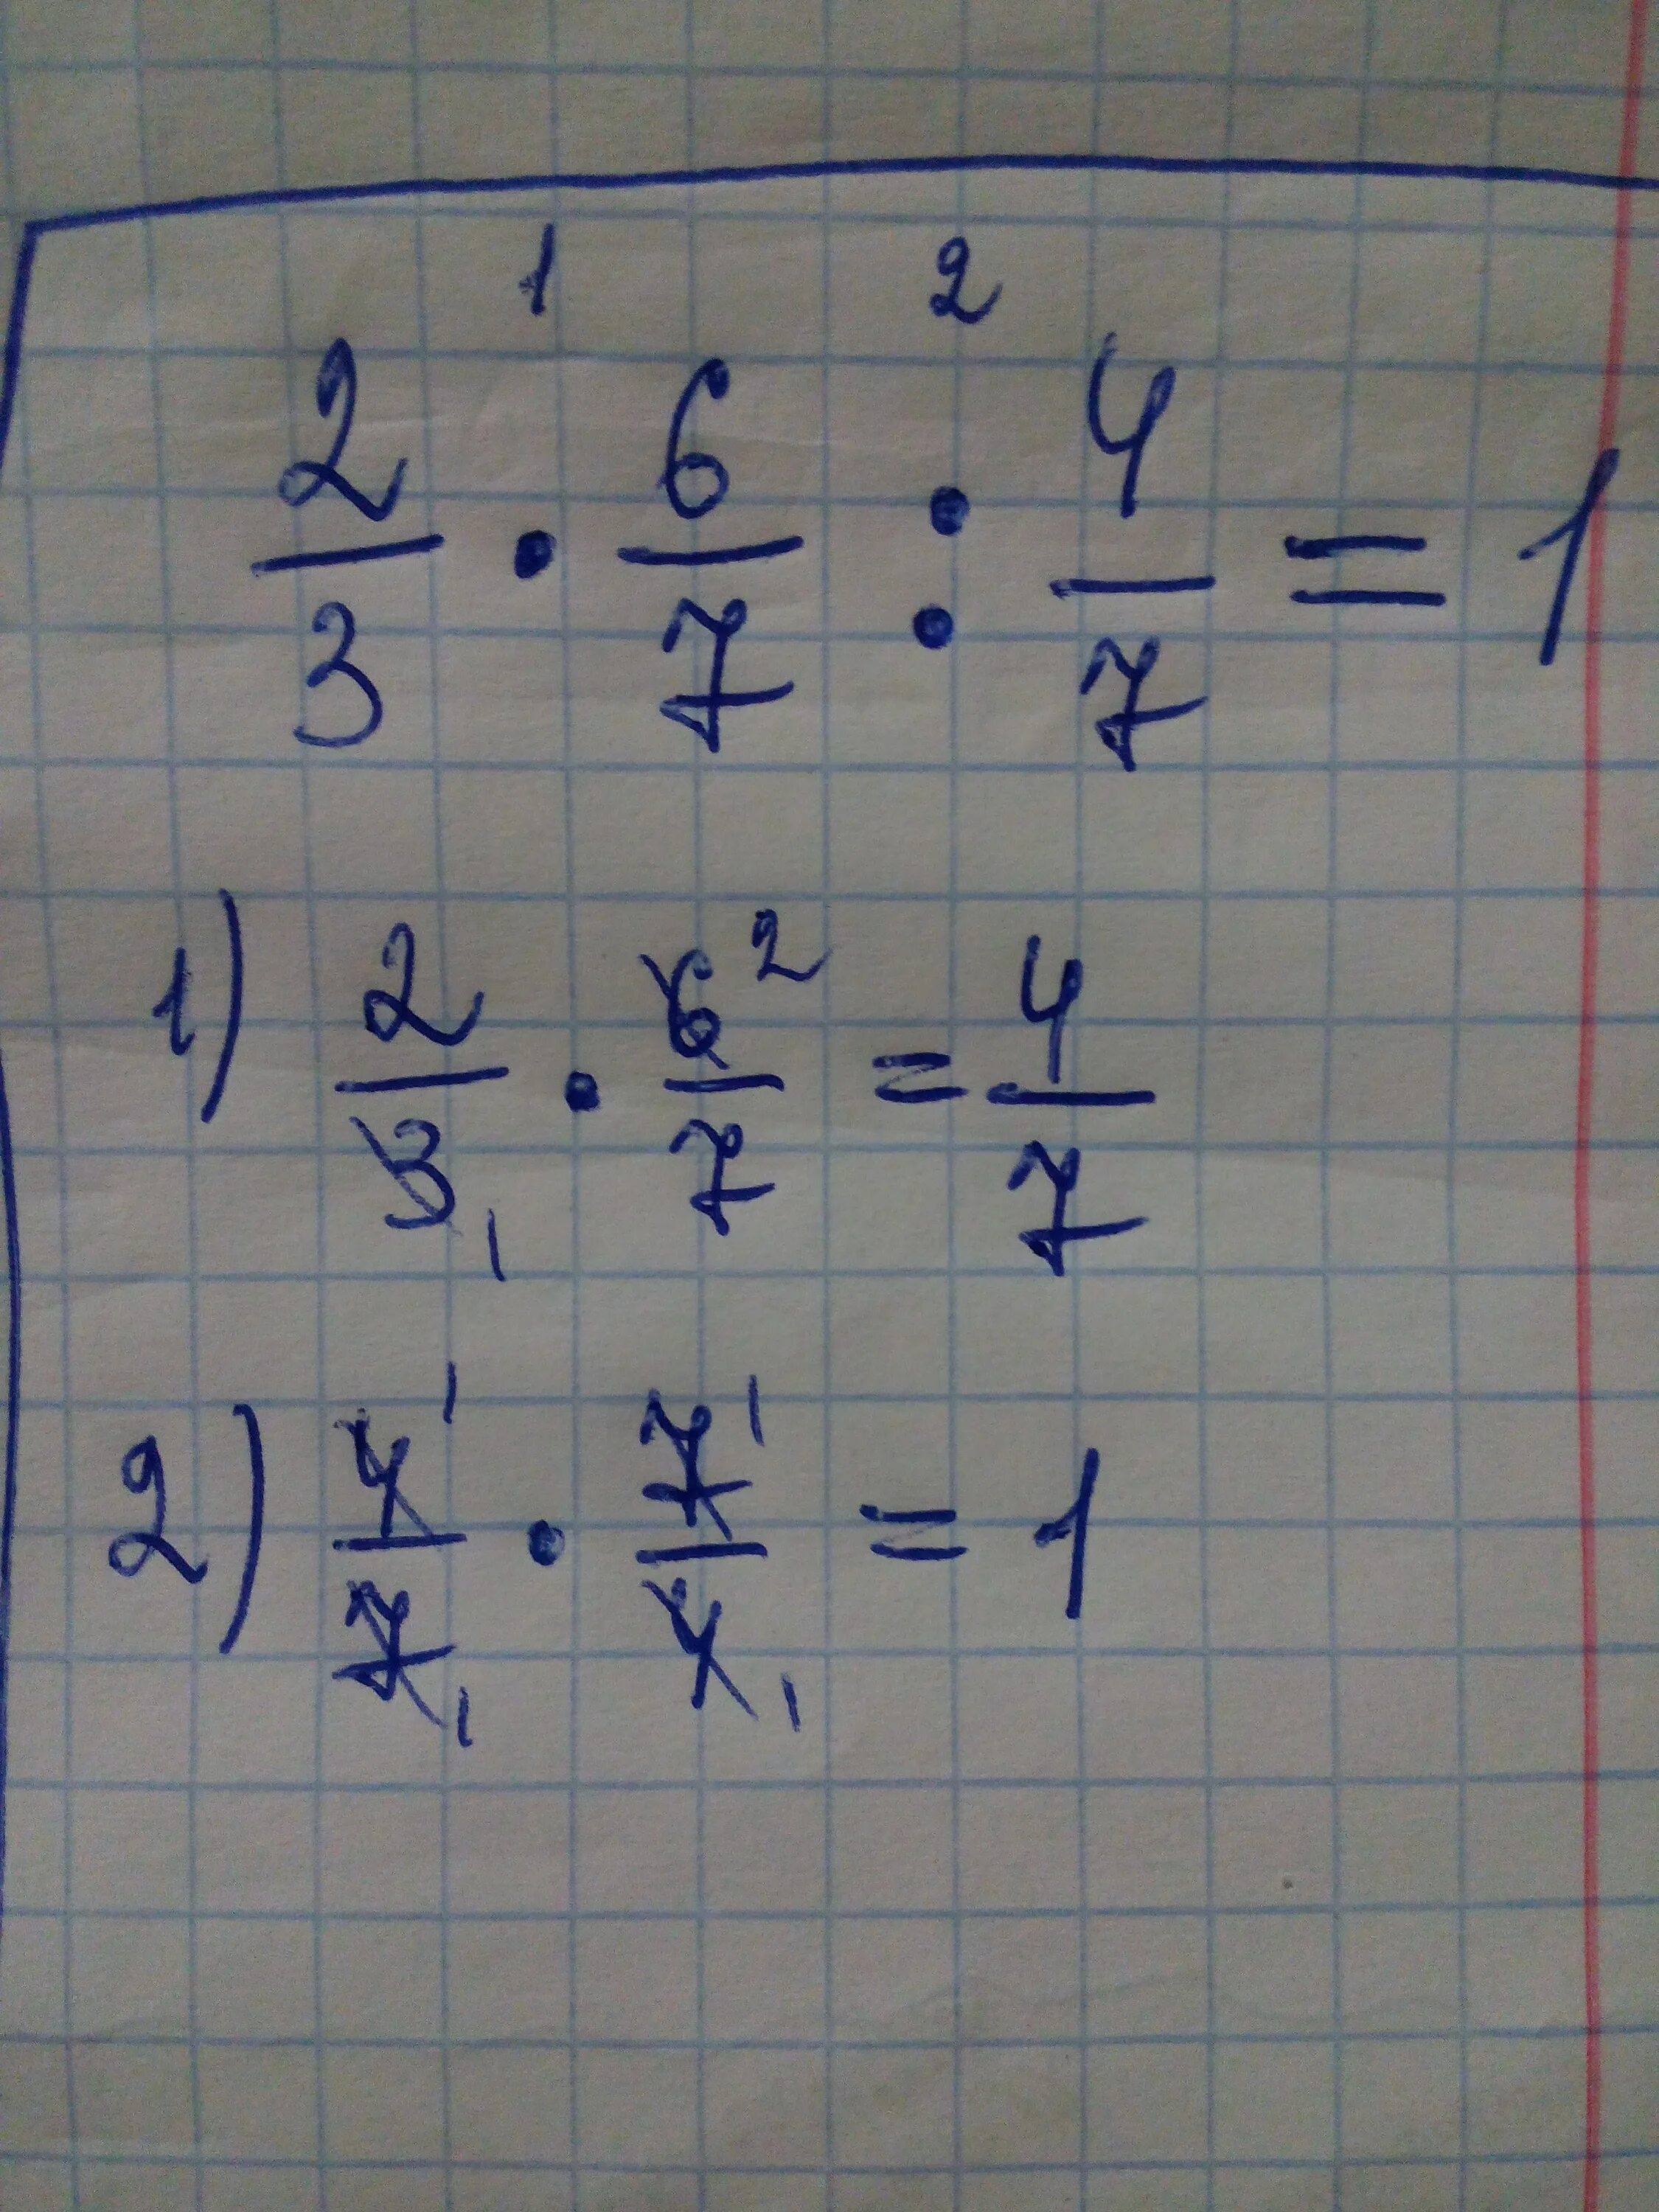 1 2
2/3 · 6/7 : 4/7 = 1
1) 2/3 1 · 6 2/7 = 4/7
2) 4 1/7 1 · 7 1/4 1 = 1